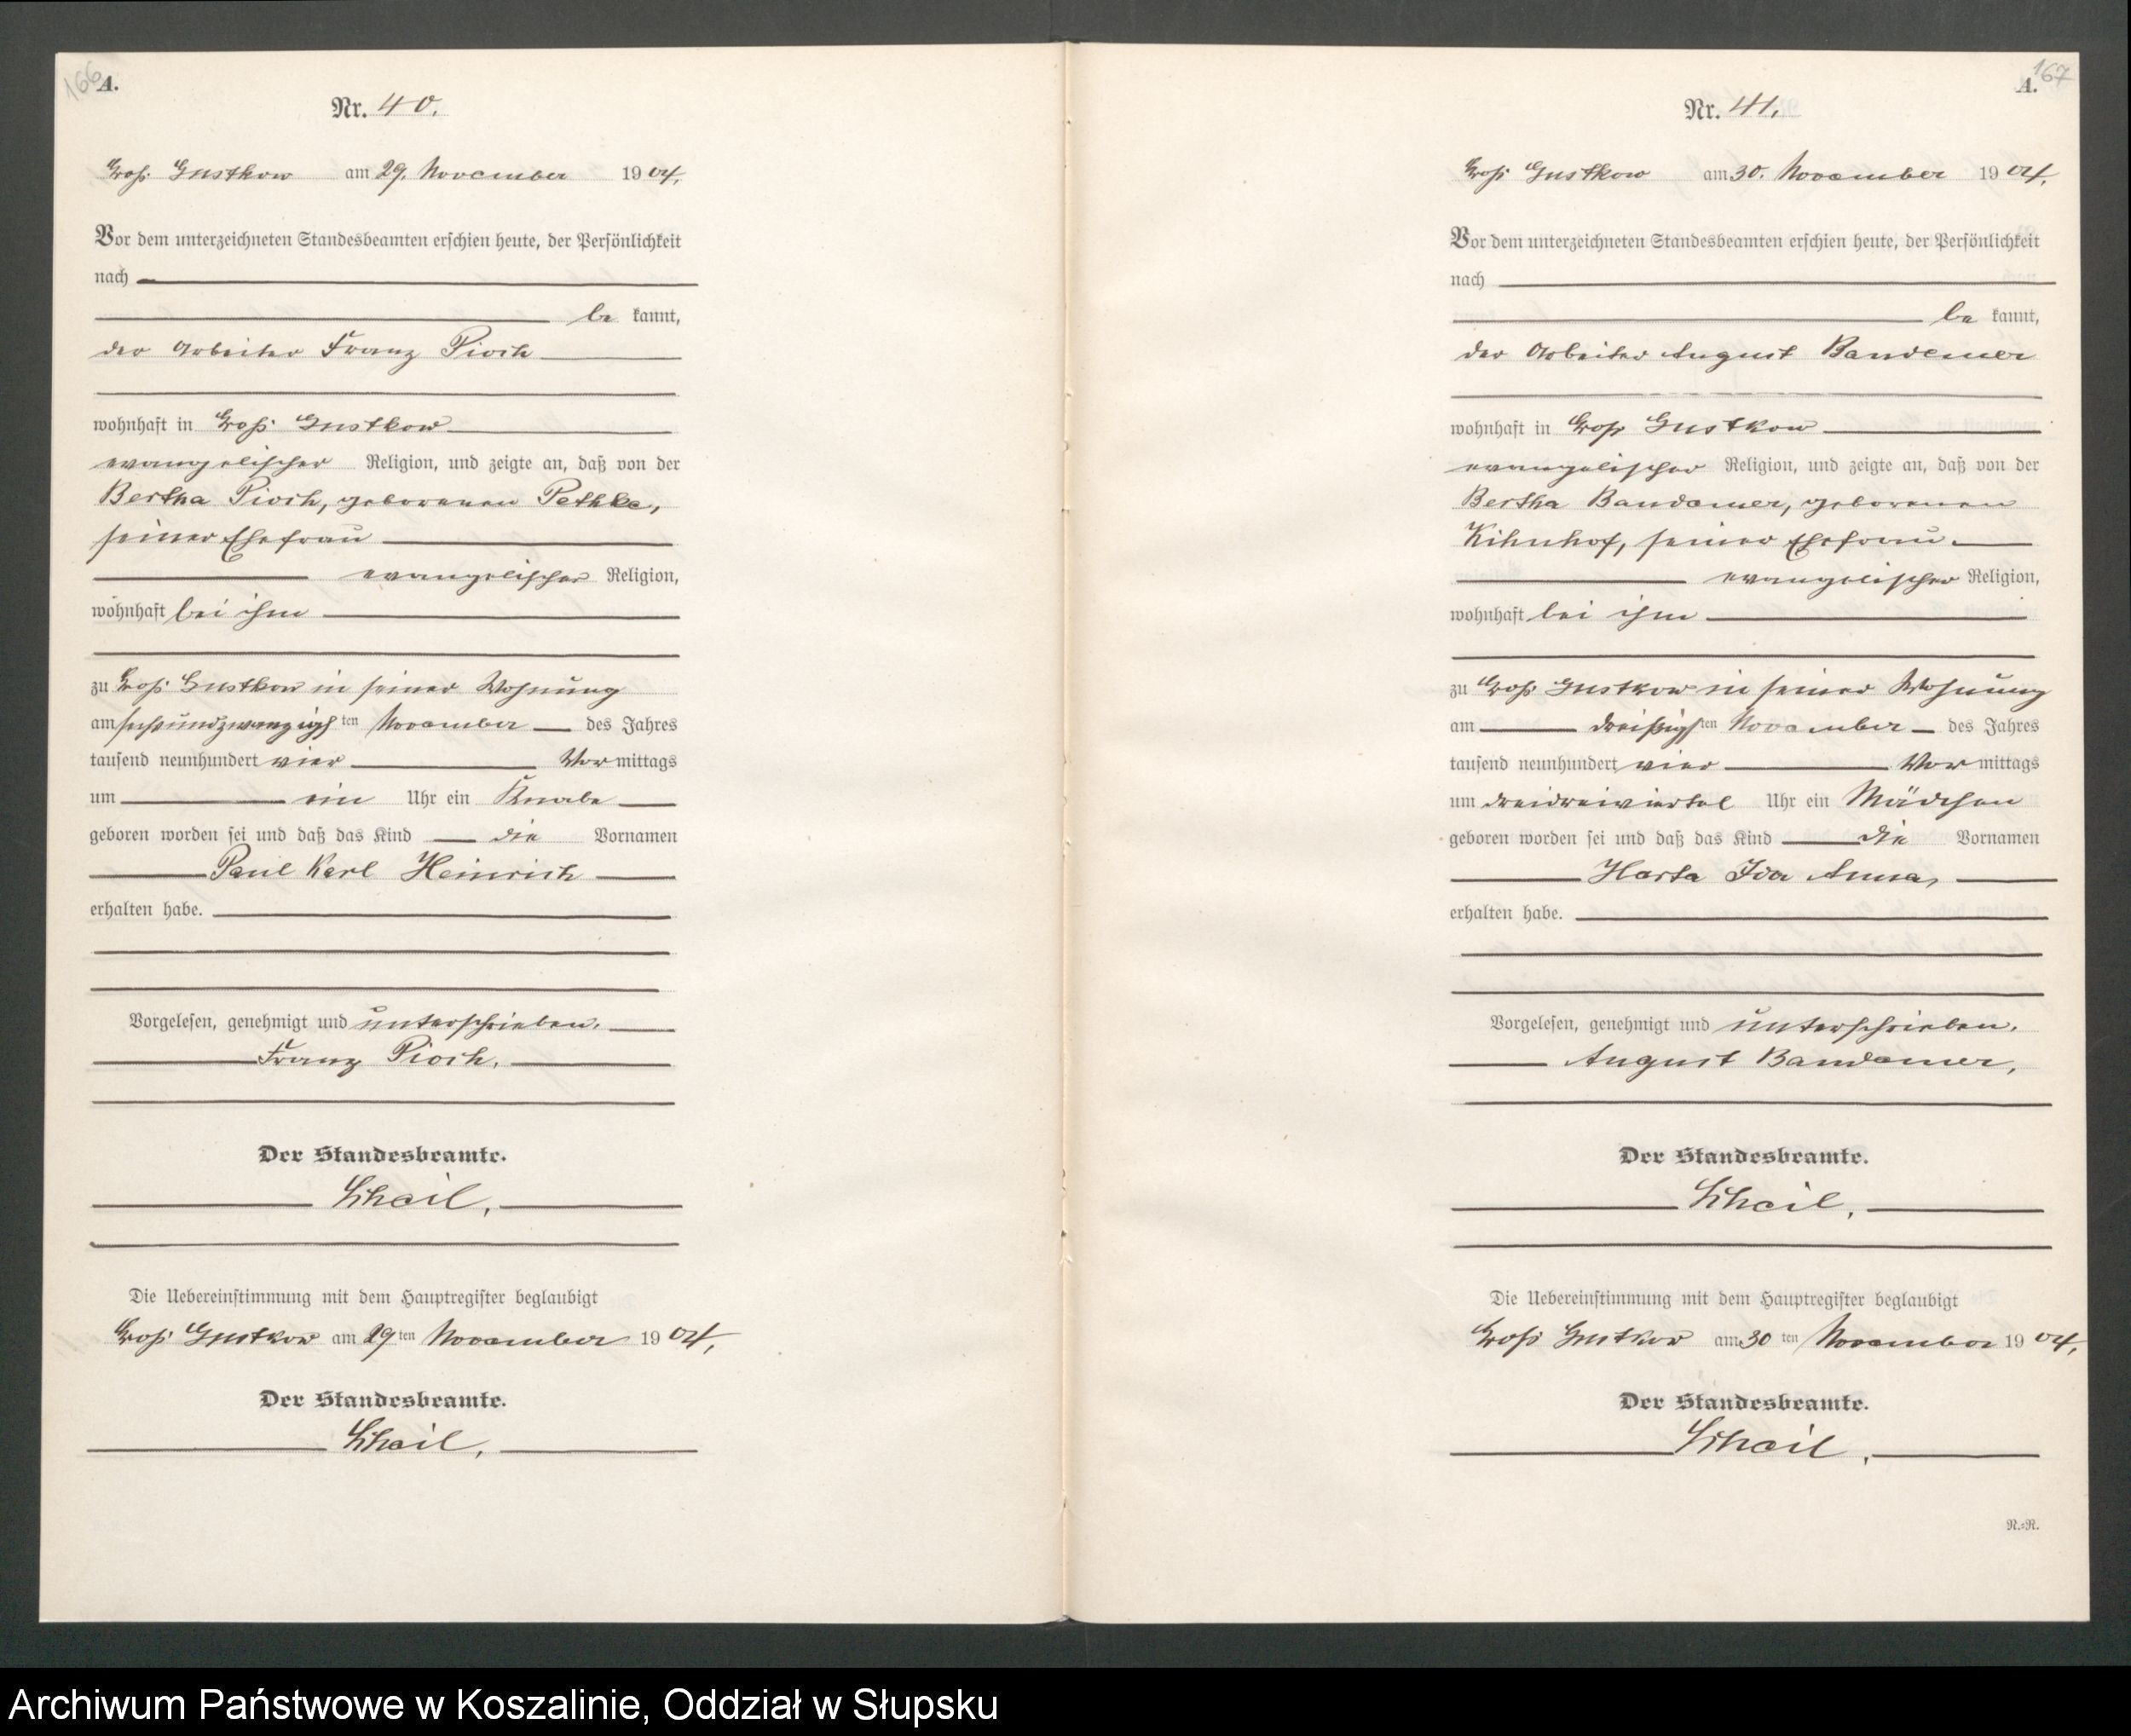 166
A.
Nr. 40.
Groß Gustkow am 29. November 1904.
Vor dem unterzeichneten Standesbeamten erschien heute, der Persönlichkeit
nach
be kannt,
der Arbeiter Franz Pioch
wohnhaft in Groß Gustkow
evangelischer Religion, und zeigte an, daß von der
Bertha Pioch, geborenen Pethke,
seiner Ehefrau
evangelischer Religion,
wohnhaft bei ihm
zu Groß Gustkow in seiner Wohnung
am sechsundzwanzigsten November des Jahres
tausend neunhundert vier Vormittags
um ein Uhr ein Knabe
geboren worden sei und daß das Kind die Vornamen
Paul Karl Heinrich
erhalten habe.
Vorgelesen, genehmigt und unterschrieben.
Franz Pioch.
Der Standesbeamte.
Scheil.
Die Uebereinstimmung mit dem Hauptregister beglaubigt
Groß Gustkow am 29ten November 1904.
Der Standesbeamte.
Scheil.
167
A.
Nr. 41.
Groß Gustkow am 30. November 1904.
Vor dem unterzeichneten Standesbeamten erschien heute, der Persönlichkeit
nach
be kannt,
der Arbeiter August Bandemer
wohnhaft in Groß Gustkow
evangelischer Religion, und zeigte an, daß von der
Bertha Bandemer, geborenen
seiner Ehefrau
evangelischer Religion,
wohnhaft bei ihm
zu Groß Gustkow in seiner Wohnung
am dreißigsten November des Jahres
tausend neunhundert vier Vormittags
um dreidreiviertel Uhr ein Mädchen
geboren worden sei und daß das Kind die Vornamen
Herta Ida Anna,
erhalten habe.
Vorgelesen, genehmigt und unterschrieben.
August Bandemer.
Der Standesbeamte.
Scheil.
Die Uebereinstimmung mit dem Hauptregister beglaubigt
Groß Gustkow am 30ten November 1904.
Der Standesbeamte.
Scheil.
R.=R.
Archiwum Państwowe w Koszalinie, Oddział w Słupsku